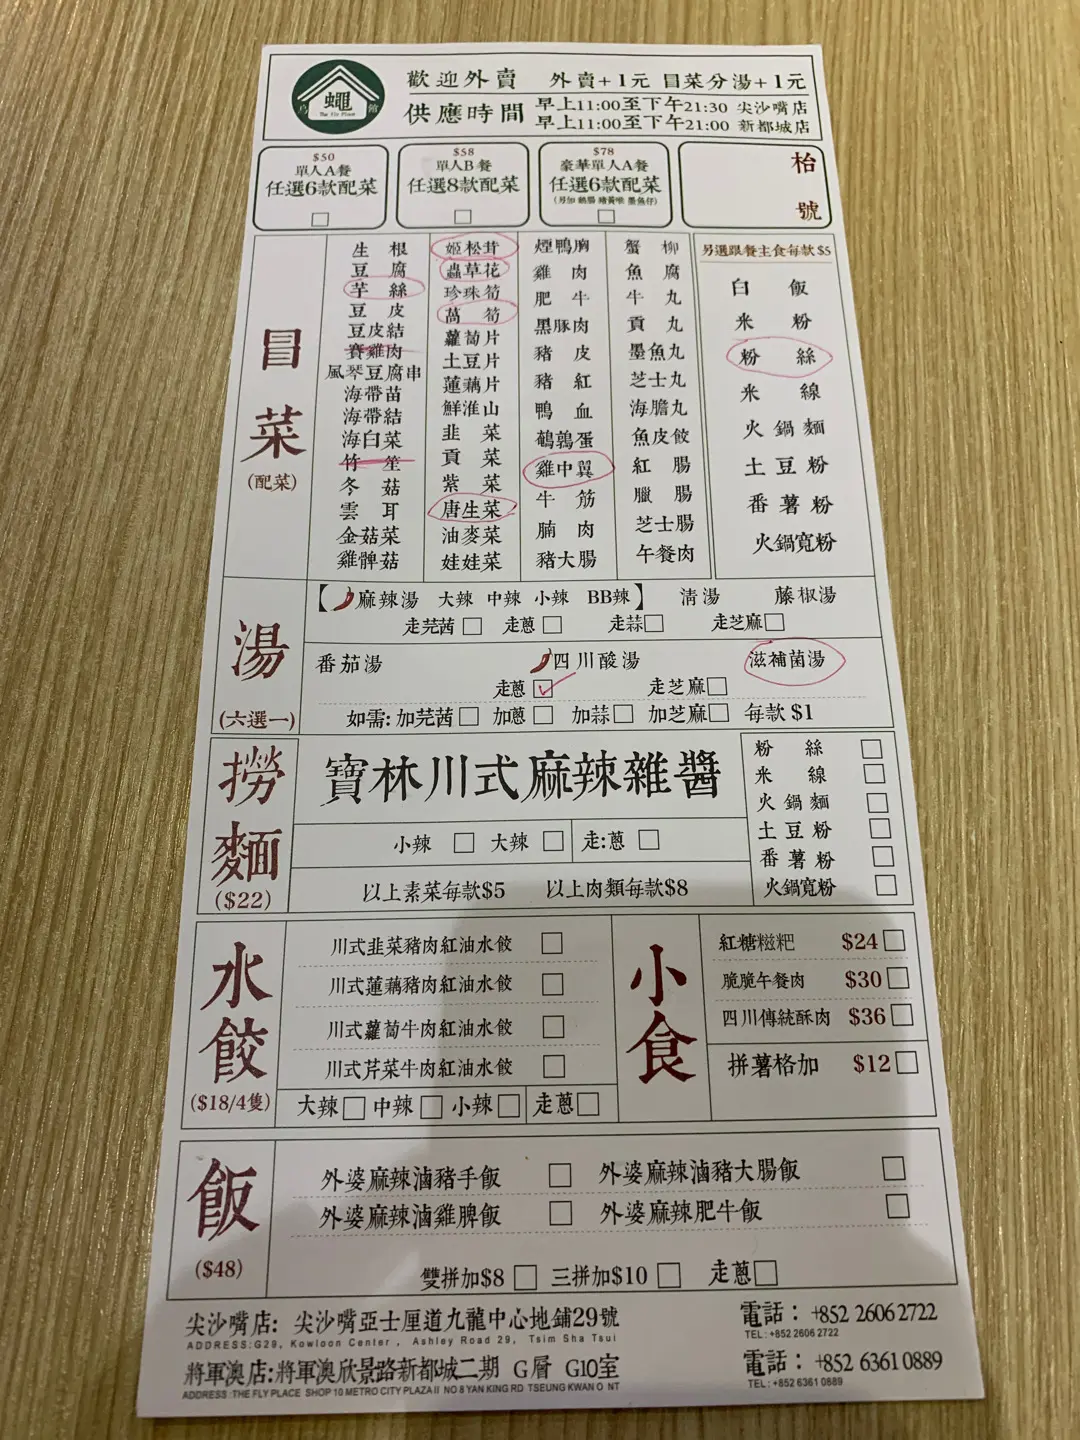 蠅
The Fly Place
歡迎外賣 外賣+1元 冒菜分湯+1元
供應時間
早上11:00至下午21:30 尖沙嘴店
早上11:00至下午21:00 新都城店
$50
單人A餐
任選6款配菜
$58
單人B餐
任選8款配菜
$78
豪華單人A餐
任選6款配菜
枱
號
冒菜
(配菜)
生根
豆腐
芋絲
豆皮
豆皮結
賽雞肉
風琴豆腐串
海帶苗
海帶結
海白菜
竹笙
冬菇
雲耳
金菇菜
雞髀菇
姬松茸
蟲草花
珍珠筍
萵筍
蘿蔔片
土豆片
蓮藕片
鮮淮山
韭菜
貢菜
紫菜
唐生菜
油麥菜
娃娃菜
煙鴨胸
雞肉
肥牛
黑豚肉
豬皮
豬紅
鴨血
鵪鶉蛋
雞中翼
牛筋
腩肉
豬大腸
蟹柳
魚腐
牛丸
貢丸
墨魚丸
芝士丸
海膽丸
魚皮餃
紅腸
臘腸
芝士腸
午餐肉
另選跟餐主食每款$5
白飯
米粉
粉絲
米線
火鍋麵
土豆粉
番薯粉
火鍋寬粉
湯
(六選一)
【麻辣湯 大辣 中辣 小辣 BB辣】 清湯 藤椒湯
走芫茜 走蔥 走蒜 走芝麻
番茄湯 四川酸湯 滋補菌湯
走蔥 走芝麻
如需: 加芫茜 加蔥 加蒜 加芝麻 每款 $1
撈麵
($22)
寶林川式麻辣雜醬
小辣 大辣 走:蔥
以上素菜每款$5 以上肉類每款$8
粉絲
米線
火鍋麵
土豆粉
番薯粉
火鍋寬粉
水餃
($18/4隻)
川式韭菜豬肉紅油水餃
川式蓮藕豬肉紅油水餃
川式蘿蔔牛肉紅油水餃
川式芹菜牛肉紅油水餃
大辣 中辣 小辣 走蔥
小食
紅糖糍粑 $24
脆脆午餐肉 $30
四川傳統酥肉 $36
拼薯格加 $12
飯
($48)
外婆麻辣滷豬手飯 外婆麻辣滷豬大腸飯
外婆麻辣滷雞脾飯 外婆麻辣肥牛飯
雙拼加$8 三拼加$10 走蔥
尖沙嘴店: 尖沙嘴亞士厘道九龍中心地鋪29號
ADDRESS:G29, Kowloon Center , Ashley Road 29, Tsim Sha Tsui
電話： +852 2606 2722
TEL : +852 2606 2722
將軍澳店:將軍澳欣景路新都城二期 G層 G10室
ADDRESS :THE FLY PLACE SHOP 10 METRO CITY PLAZA II NO 8 YAN KING RD TSEUNG KWAN O NT
電話： +852 6361 0889
TEL : +852 6361 0889